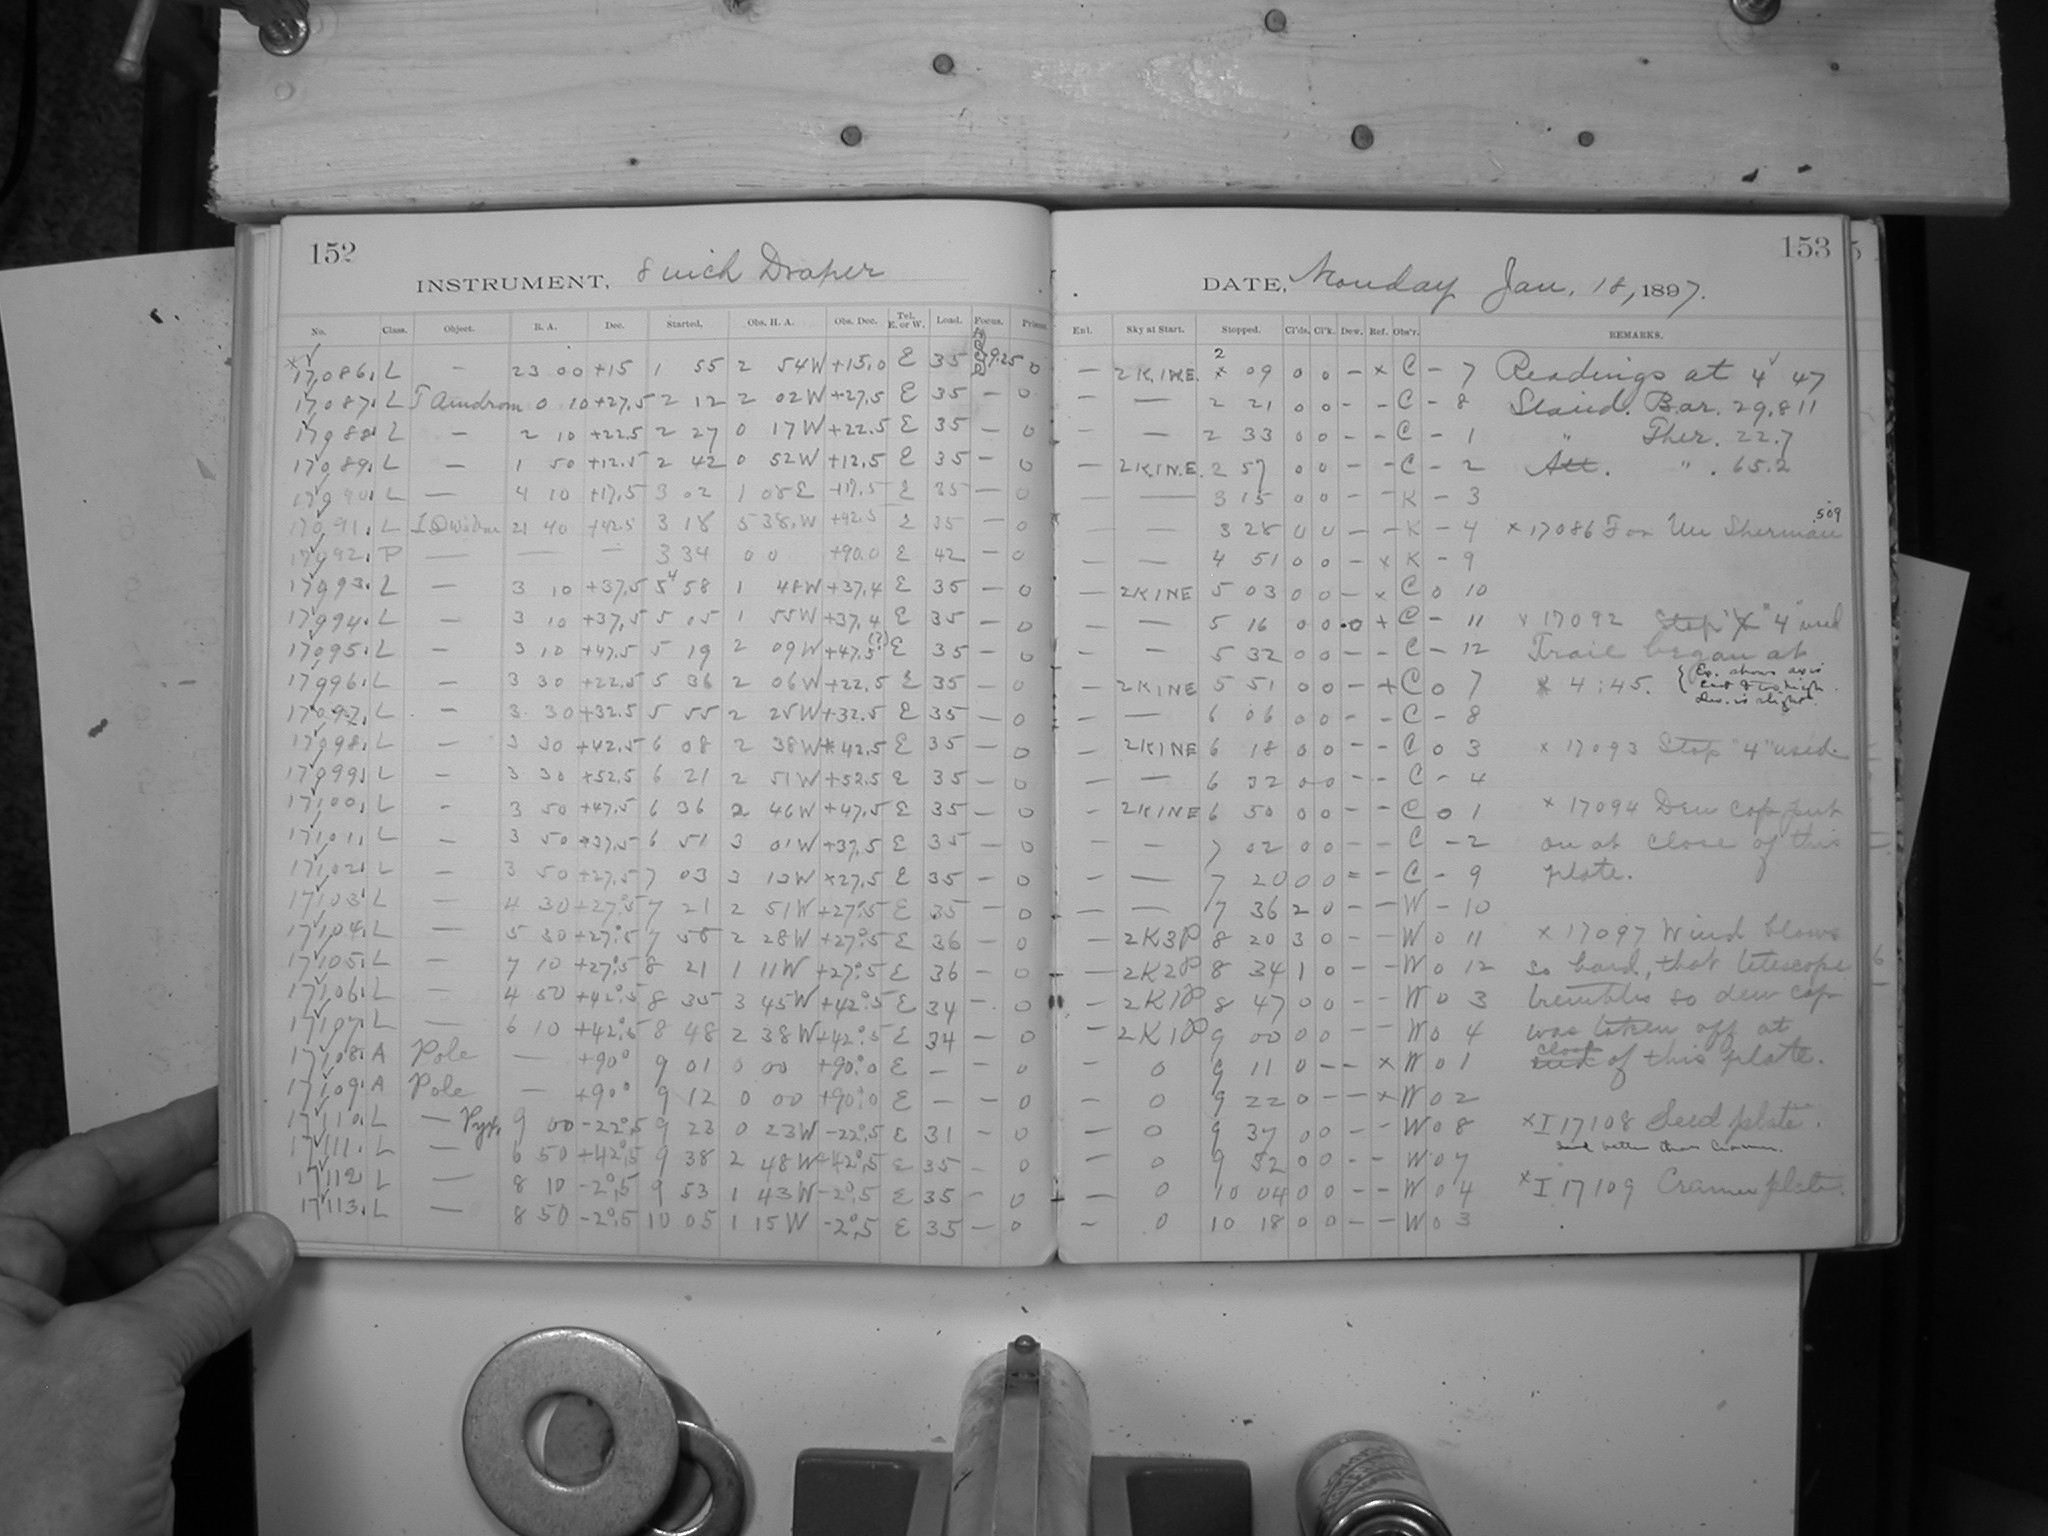 152
INSTRUMENT, 8 inch Draper
No. Class. Object. R. A. Dec. Started, Obs. H. A. Obs. Dec. Tel. E. or W. Load. Focus. Prisms.
17086. L — 23 00 +15 1 55 2 54W +15.0 E 35 9.25 0
17087. L T Amdrom 0 10 +27.5 2 12 2 02W +27.5 E 35 — 0
17088. L — 2 10 +22.5 2 27 0 17W +22.5 E 35 — 0
17089. L — 1 50 +12.5 2 42 0 52W +12.5 E 35 — 0
17090. L — 4 10 +17.5 3 02 1 08E +17.5 E 35 — 0
17091. L 21 40 +42.5 3 18 5 38.W +42.5 E 35 — 0
17092. P — — — 3 34 0 0 +90.0 E 42 — 0
17093. L — 3 10 +37.5 5 4 58 1 48W +37.4 E 35 — 0
17094. L — 3 10 +37.5 5 05 1 55W +37.4 E 35 — 0
17095. L — 3 10 +47.5 5 19 2 09W +47.5 (?) E 35 — 0
17096. L — 3 30 +22.5 5 36 2 06W +22.5 E 35 — 0
17097. L — 3 30 +32.5 5 55 2 25W +32.5 E 35 — 0
17098. L — 3 30 +42.5 6 08 2 38W +42.5 E 35 — 0
17099. L — 3 30 +52.5 6 21 2 51W +52.5 E 35 — 0
17100. L — 3 50 +47.5 6 36 2 46W +47.5 E 35 — 0
17101. L — 3 50 +37.5 6 51 3 01W +37.5 E 35 — 0
17102. L — 3 50 +27.5 7 03 3 13W +27.5 E 35 — 0
17103. L — 4 30 +27°.5 7 21 2 51W +27°.5 E 35 — 0
17104. L — 5 30 +27°.5 7 58 2 28W +27°.5 E 36 — 0
17105. L — 7 10 +27°.5 8 21 1 11W +27°.5 E 36 — 0
17106. L — 4 50 +42°.5 8 35 3 45W +42°.5 E 34 — 0
17107. L — 6 10 +42°.5 8 48 2 38W +42°.5 E 34 — 0
17108. A Pole — +90° 9 01 0 00 +90°.0 E — — 0
17109. A Pole — +90° 9 12 0 00 +90°.0 E — — 0
17110. L — Pyx. 9 00 -22°.5 9 23 0 23W -22°.5 E 31 — 0
17111. L — 6 50 +42°.5 9 38 2 48W +42°.5 E 35 — 0
17112. L — 8 10 -2°.5 9 53 1 43W -2°.5 E 35 — 0
17113. L — 8 50 -2°.5 10 05 1 15W -2°.5 E 35 — 0
153
DATE, Monday Jan. 18, 1897.
Enl. Sky at Start. Stopped. Cl'ds. Cl'k. Dew. Ref. Obs'r. REMARKS.
— 2K1NE. 2 09 0 0 — x C — 7 Readings at 4 47
— — 2 21 0 0 — — C — 8 Stand. Bar. 29.811
— — 2 33 0 0 — — C — 1 " Ther. 22.7
— 2K1N.E. 2 57 0 0 — — C — 2 Att. " . 65.2
— — 3 15 0 0 — — K — 3
— — 3 28 0 0 — — K — 4 x 17086 For Mr Sherman .509
— — 4 51 0 0 — x K — 9
2K1NE 5 03 0 0 — x C 0 10
— — 5 16 0 0 .0 + C — 11 x 17092 Stop "4" used
— — 5 32 0 0 — — C — 12 Trail began at
— 2K1NE 5 51 0 0 — + C 0 7 4:45.
— — 6 06 0 0 — — C — 8
— 2K1NE 6 18 0 0 — — C 0 3 x 17093 Stop "4" used
— — 6 32 0 0 — — C — 4
— 2K1NE 6 50 0 0 — — C 0 1 x 17094 Dew cap put
— — 7 02 0 0 — — C — 2 on at close of this
— — 7 20 0 0 = — C — 9 plate.
— — 7 36 2 0 — — W — 10
— 2K3P 8 20 3 0 — — W 0 11 x 17097 Wind blows
— 2K2P 8 34 1 0 — — W 0 12 so hard, that telescope
— 2K1P 8 47 0 0 — — W 0 3 trembles so dew cap
— 2K1P 9 00 0 0 — — W 0 4 was taken off at
— 0 9 11 0 — — x W 0 1 close of this plate.
— 0 9 22 0 — — x W 0 2
— 0 9 37 0 0 — — W 0 8 x I 17108 Seed plate.
— 0 9 52 0 0 — — W 0 7 Seed better than Cramer.
— 0 10 04 0 0 — — W 0 4 x I 17109 Cramer plate.
— 0 10 18 0 0 — — W 0 3